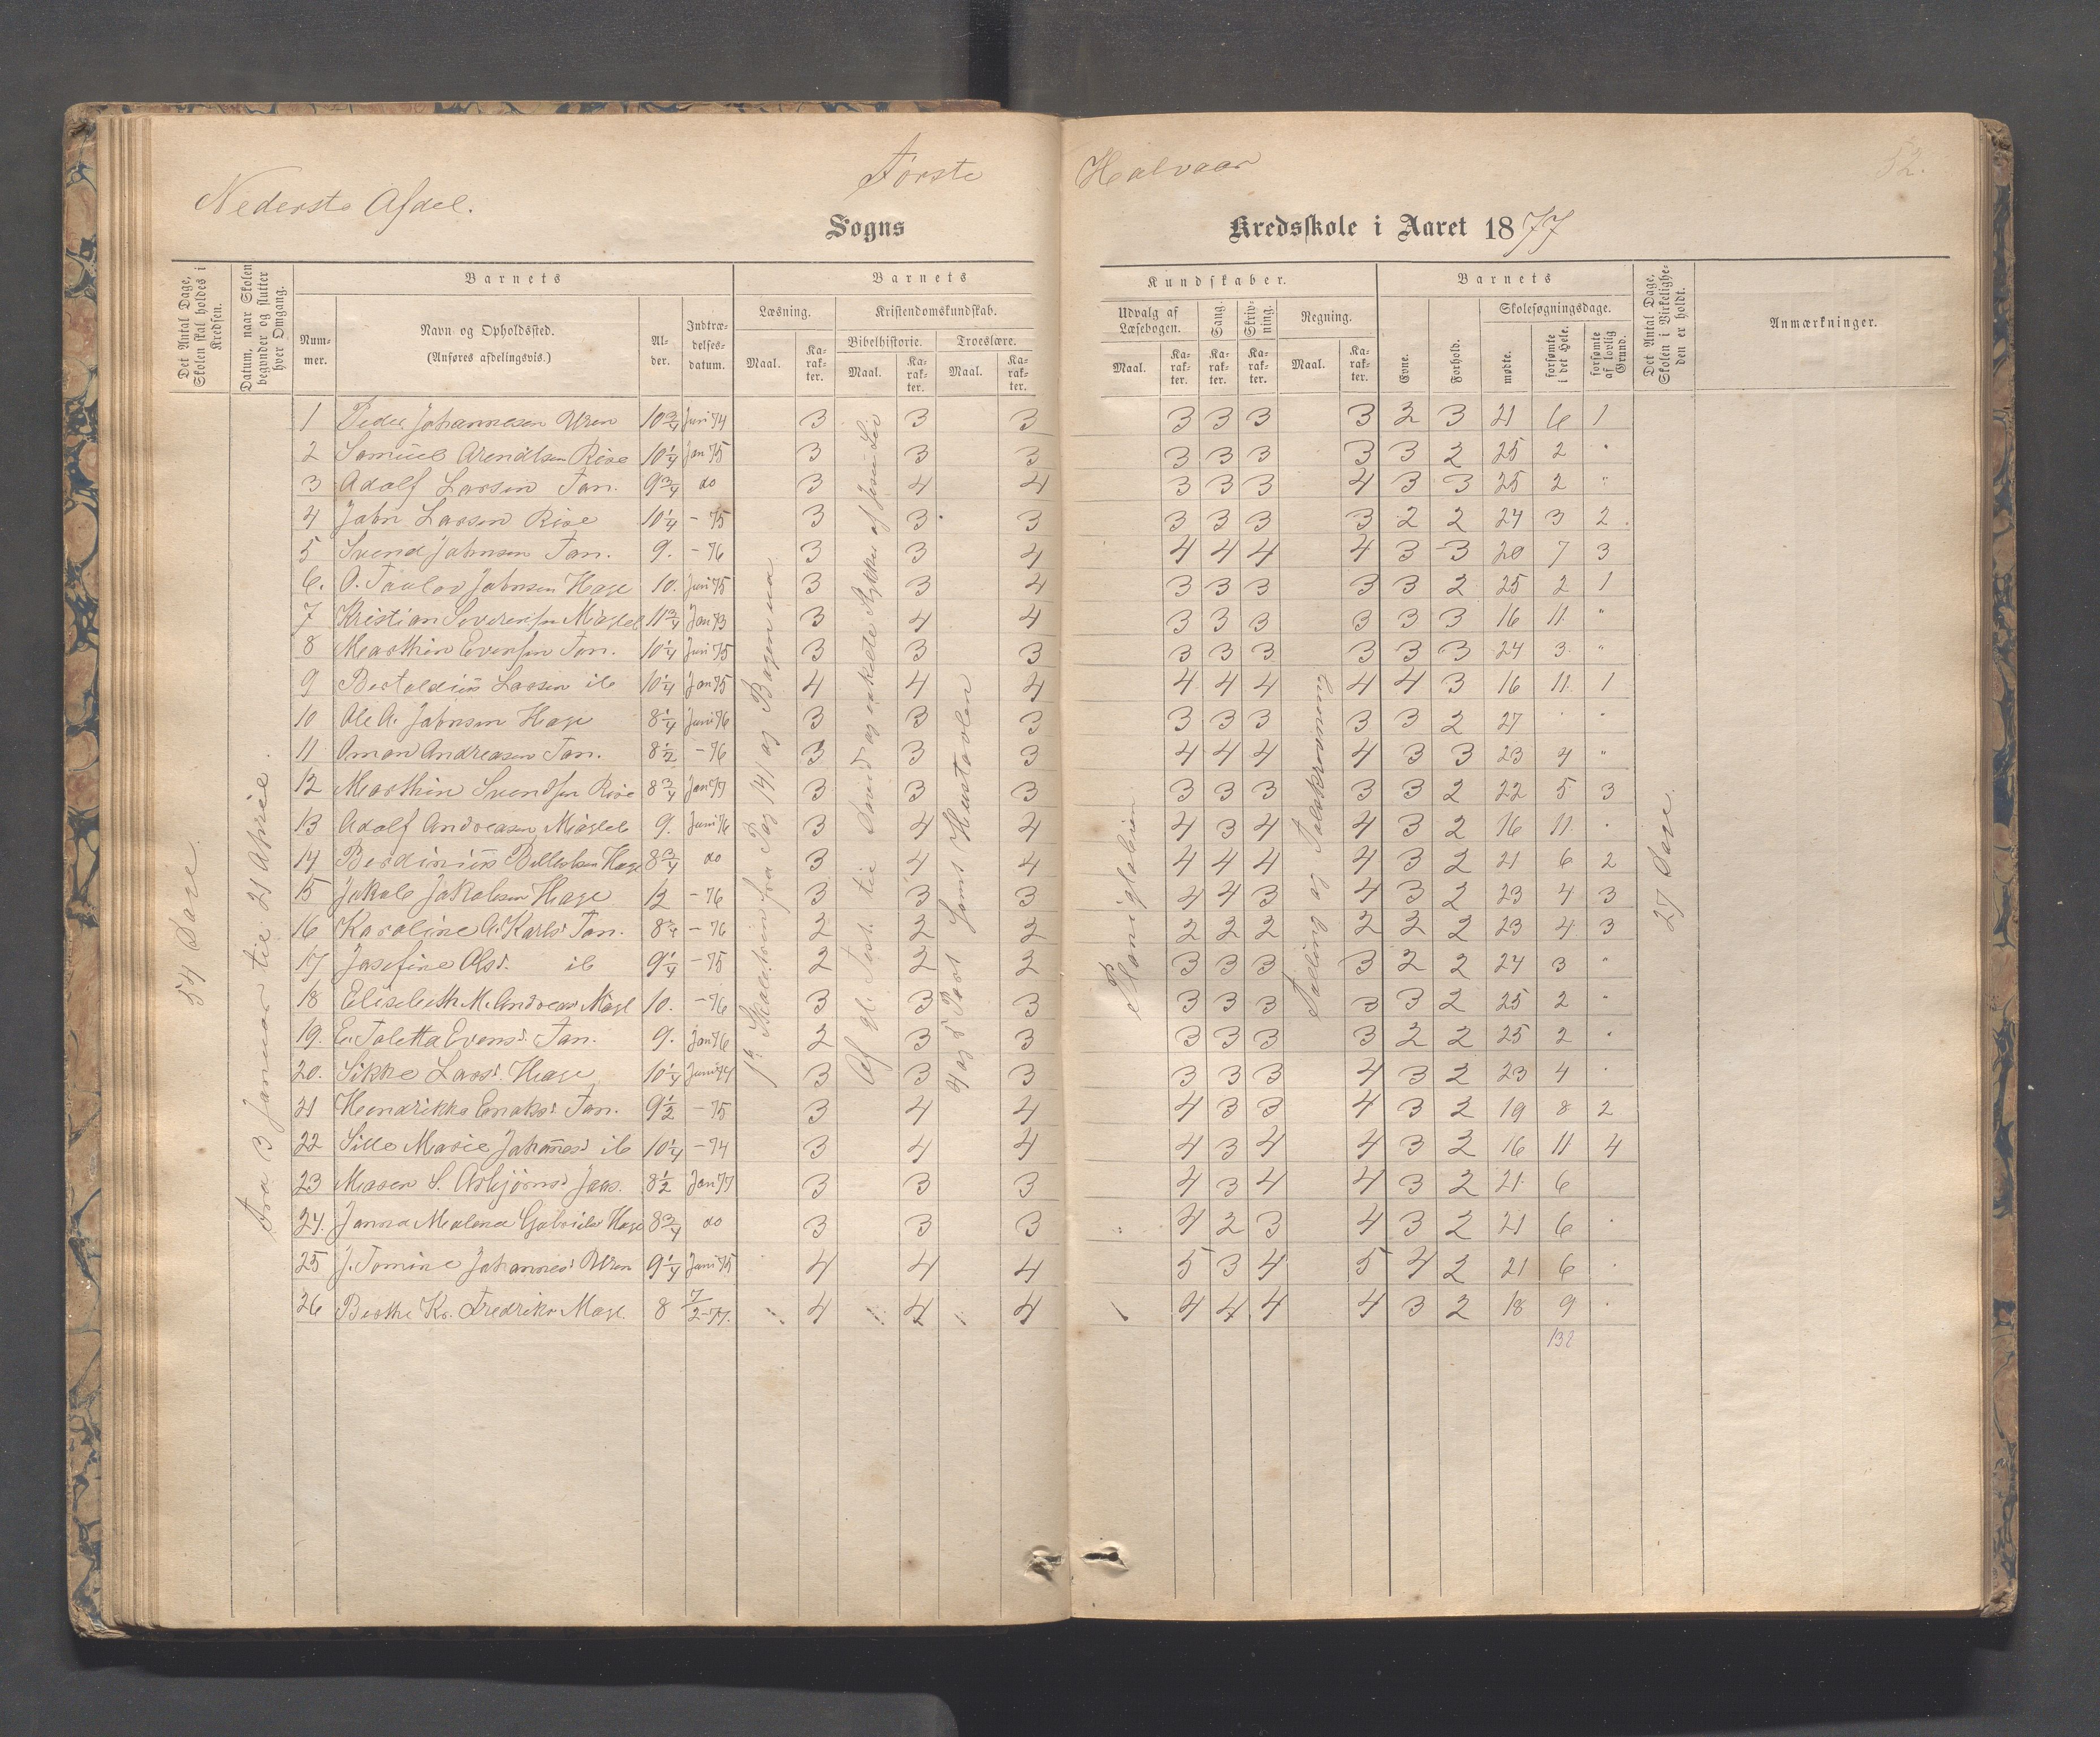 Nederste Afdel.
Første
Halvaar
52.
Sogns
Kredsskole i Aaret 1877
Det Antal Dage, Skolen skal holdes i Kredsen.
Datum, naar Skolen begynder og slutter hver Omgang.
Barnets
Barnets
Kundskaber.
Barnets
Det Antal Dage, Skolen i Virkelighe- den er holdt.
Anmærkninger.
Num- mer.
Navn og Opholdssted. (Anføres afdelingsvis.)
Al- der.
Indtræ- delses- datum.
Læsning.
Kristendomskundskab.
Bibelhistorie.
Troeslære.
Maal.
Ka- rak- ter.
Maal.
Ka- rak- ter.
Maal.
Ka- rak- ter.
Udvalg af Læsebogen.
Sang.
Skriv- ning.
Regning.
Maal.
Ka- rak- ter.
Ka- rak- ter.
Ka- rak- ter.
Maal.
Ka- rak- ter.
Evne.
Forhold.
Skolesøgningsdage.
mødte.
forsømte i det Hele.
forsømte af lovlig Grund.
54 Dage.
Fra 3 Januar til 21 April.
1 Peder Johannesen Uren 10 3/4 Juni 74 3 3 3 3 3 3 3 2 3 21 6 1
2 Samuel Arendtsen Rise 10 1/4 Jan 75 3 3 3 3 3 3 3 3 2 25 2 "
3 Adolf Larsen Tan. 9 3/4 do 3 4 4 3 3 3 4 3 3 25 2 "
4 John Larsen Rise 10 1/4 - 75 3 3 3 3 3 3 3 2 2 24 3 2
5 Svend Johnsen Tan. 9. - 76 3 3 4 4 4 4 4 3 3 20 7 3
6. O. Taulov Johnsen Hage 10. Juni 75 3 3 4 3 3 3 3 3 2 25 2 1
7 Kristian Severinsen Mågel 11 3/4 Jan 73 3 4 4 3 3 3 3 3 3 16 11 "
8 Marthin Evensen Tan. 10 1/4 Juni 75 3 3 3 3 3 3 3 3 3 24 3 "
9 Bertoldius Larsen ib 10 1/4 Jan 75 4 4 4 4 4 4 4 4 3 16 11 1
10 Ole A. Johnsen Hage 8 1/4 Juni 76 3 3 3 3 3 3 3 3 2 27 " "
11 Oman Andreasen Tan. 8 1/2 - 76 3 3 3 4 4 4 4 3 3 23 4 "
12 Marthin Svendsen Rise 8 3/4 Jan 77 3 3 3 3 3 3 3 3 2 22 5 3
13 Adolf Andreasen Mågel 9. Juni 76 3 4 4 4 3 4 4 3 2 16 11 "
14 Berdinius Hage 8 3/4 do 3 4 4 4 4 4 4 3 2 21 6 2
15 Jakob Jakobsen Hage 12 - 76 3 3 3 4 4 3 4 3 2 23 4 3
16 Karoline A. Karlsd. Tan. 8 3/4 - 76 2 2 2 2 2 2 2 2 2 23 4 3
17 Josefine Olsd. ib 9 1/4 - 75 2 2 2 3 3 3 3 2 2 24 3 "
18 Elisabeth M. Andreasd Mågl 10. - 76 3 3 3 3 3 3 3 3 2 25 2 "
19. E. Taletta Evensd. Tan. 9. Jan 76 2 3 3 3 3 3 3 2 2 25 2 "
20. Sikke Larsd. Hage 10 1/4 Juni 74 3 3 3 3 3 3 4 3 2 23 4 "
21 Hendrikka Enoksd. Tan. 9 1/2 - 75 3 4 4 4 3 3 4 3 2 19 8 2
22 Sille Marie Johannesd ib 10 1/4 - 74 3 4 4 4 3 4 4 3 2 16 11 4
23 Maren S. Asbjørnsd Jaas. 8 1/2 Jan 77 3 3 3 4 3 4 4 3 2 21 6
24. Janna Malena Gabrielsd Hage 8 3/4 do 3 3 3 4 2 3 4 3 2 21 6 "
25 J. Tomine Johannesd Uren 9 1/4 Juni 75 4 4 4 5 3 4 5 4 2 21 6 "
26 Berthe Kr. Fredriksd Magl. 8 7/2-77. 4 4 4 4 4 4 4 3 2 18 9 "
132
Skoletrin fra Pag 141 og Bogen ud
Af gl. Test. til David og enkelte Stykker af Jesu Liv
4 og 5 Part samt Hustavlen
Planigloberne
Talling og Talskrivning
27 Dage.